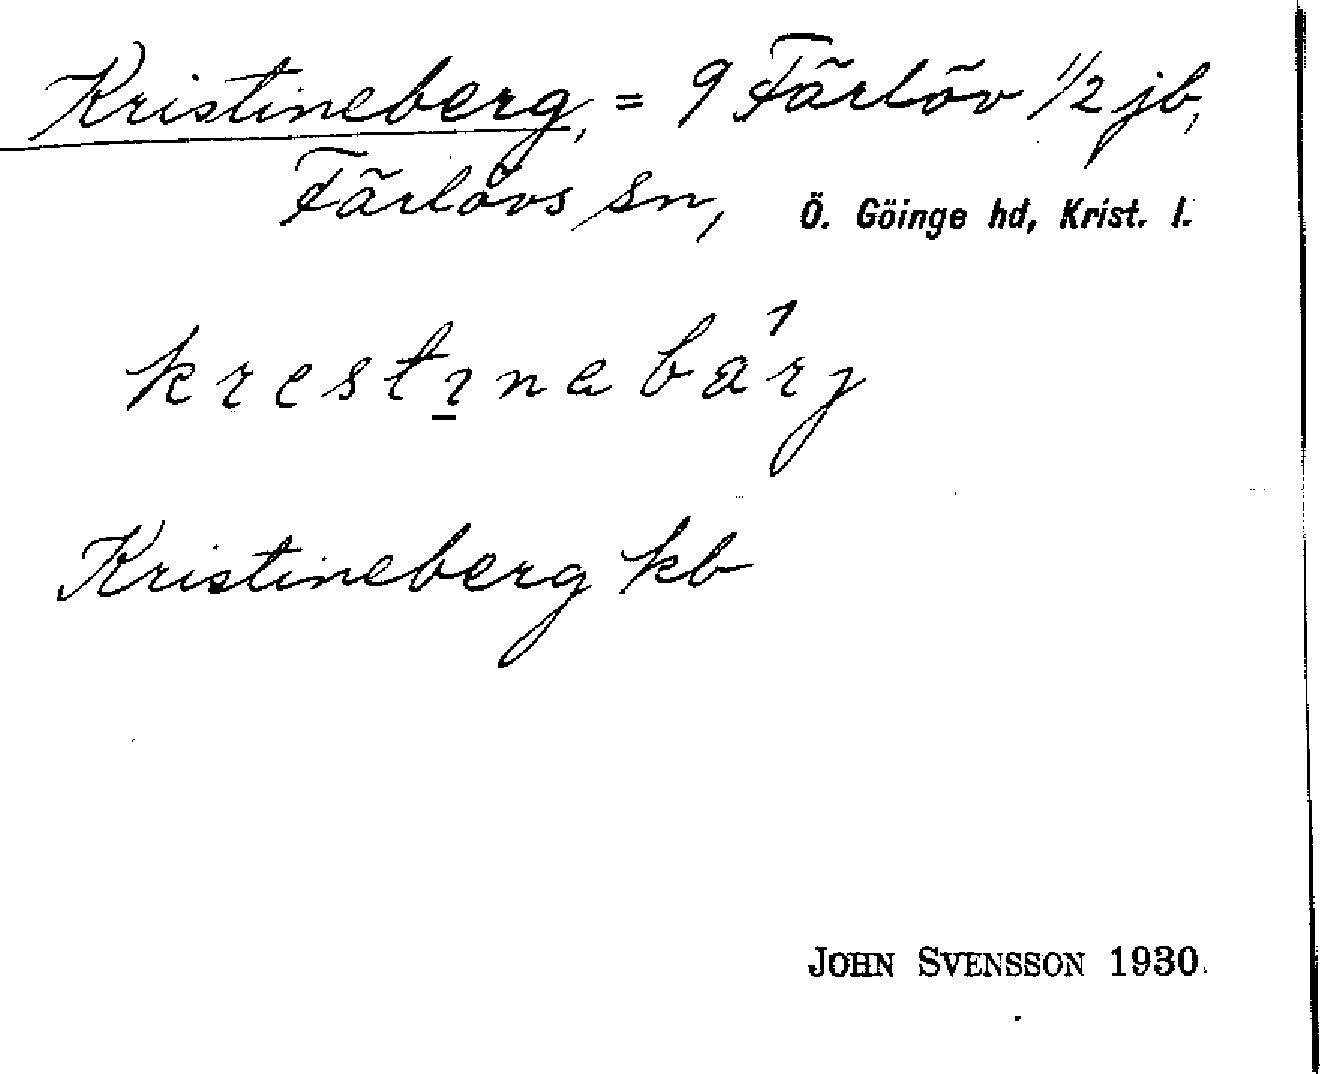 Kristineberg, = 9 Färlöv 1/2 jb,
Färlövs sn, Ö. Göinge hd, Krist. l.
krestı̱nabá̈rj
Kristineberg kb
JOHN SVENSSON 1930.